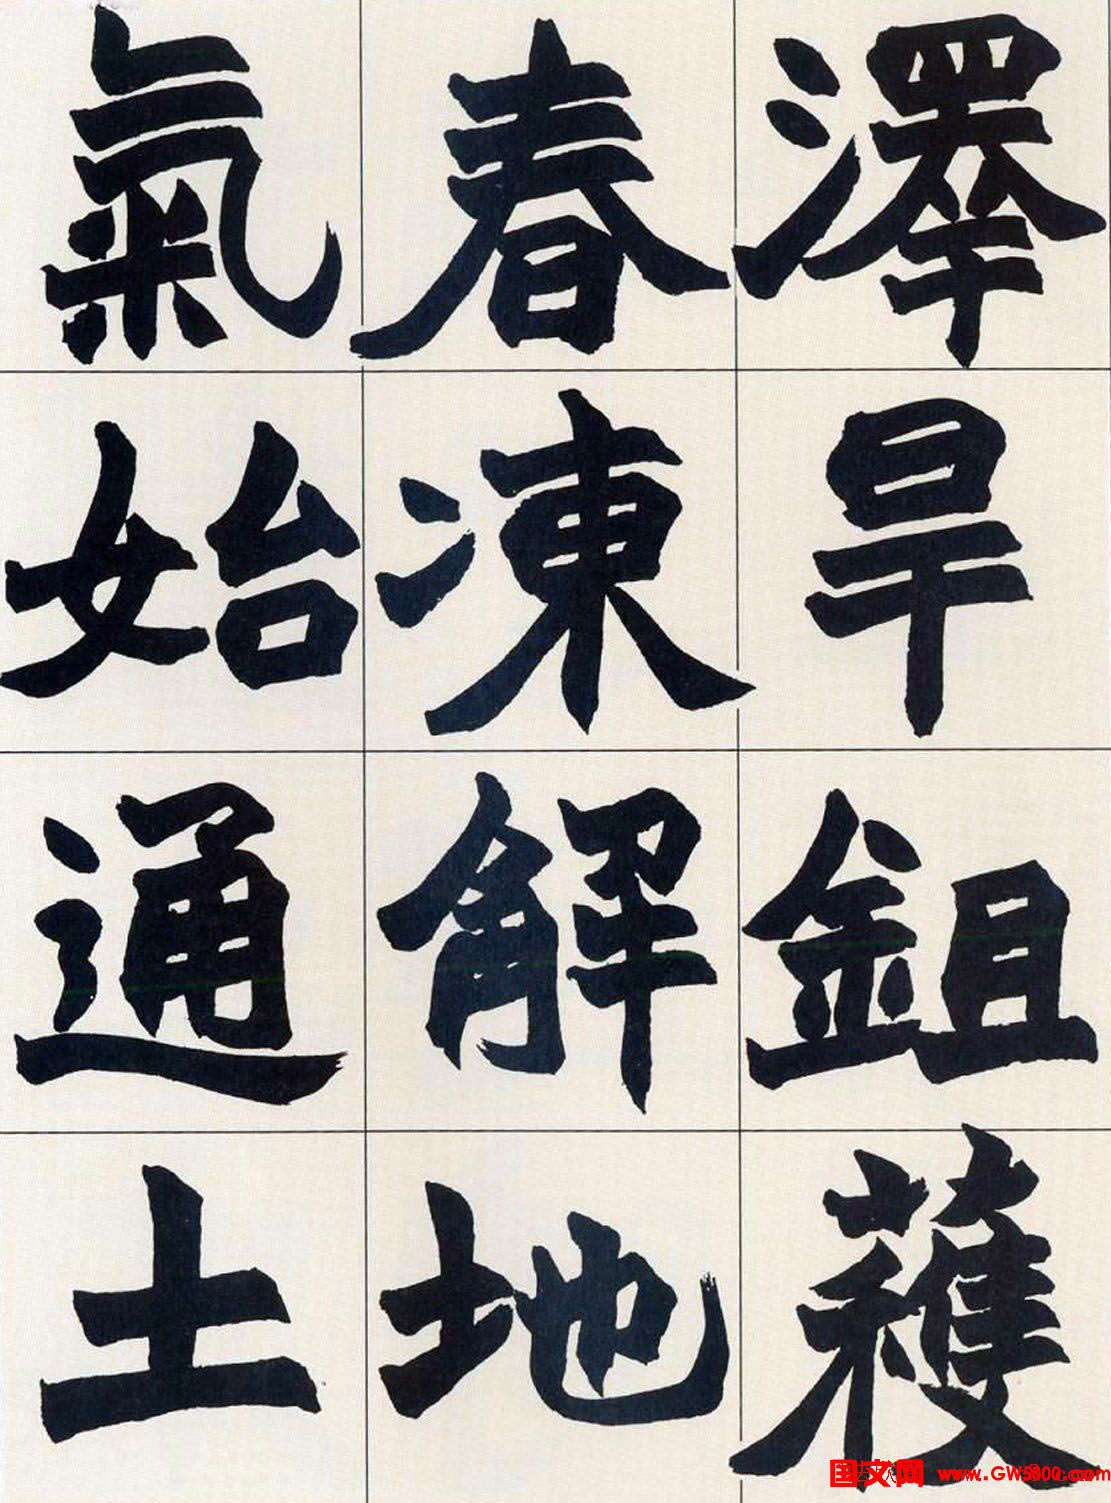 澤旱鉏穫
春凍解地
氣始通土
国文网 www.GW5000.com